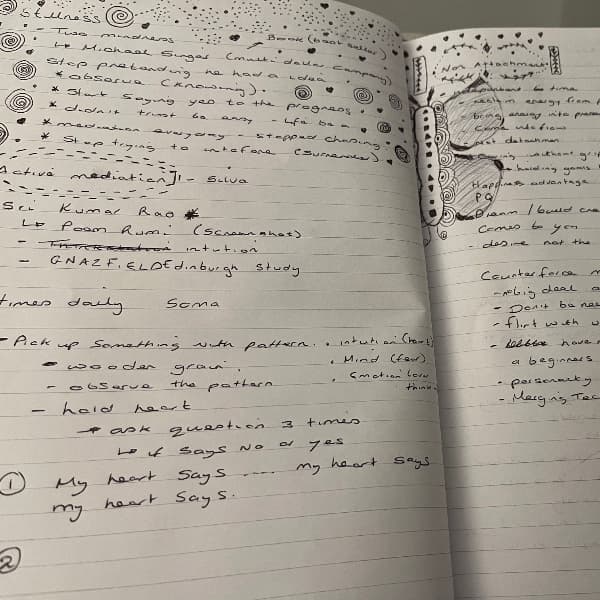 Stillness
- Two mindness
Book (best seller)
↳ Michael Singer (multi dollar company)
Stop pretending he had a idea
* observe (knowing).
* Start saying yes to the progress
* didn't trust be away - life be a
* mediation everyday - stopped chasing
* Stop trying to intefere (surrender)
Active mediation]! - Silva
Sri Kumar Rao *
↳ Poem Rumi (screenshot)
- intution
- GNAZFIELD Edinburgh study
times daily Soma
- Pick up something with pattern.
- wooden grain.
- observe the pattern
• intution (heart)
• Mind (fear)
• Emotion love
think
- hold heart
→ ask question 3 times
↳ if says no or yes
① My heart says .... my heart says
my heart says.
②
Non Attachment
to time
- reclaim energy from
being energy into
Come into flow
detachmen
without
holding
Happiness advantage
PQ
- Dream / build
comes to you
- desire not the
Counterforce
- no big deal
- Don't be
- flirt with
- have
a beginners
-
- Merging Tec